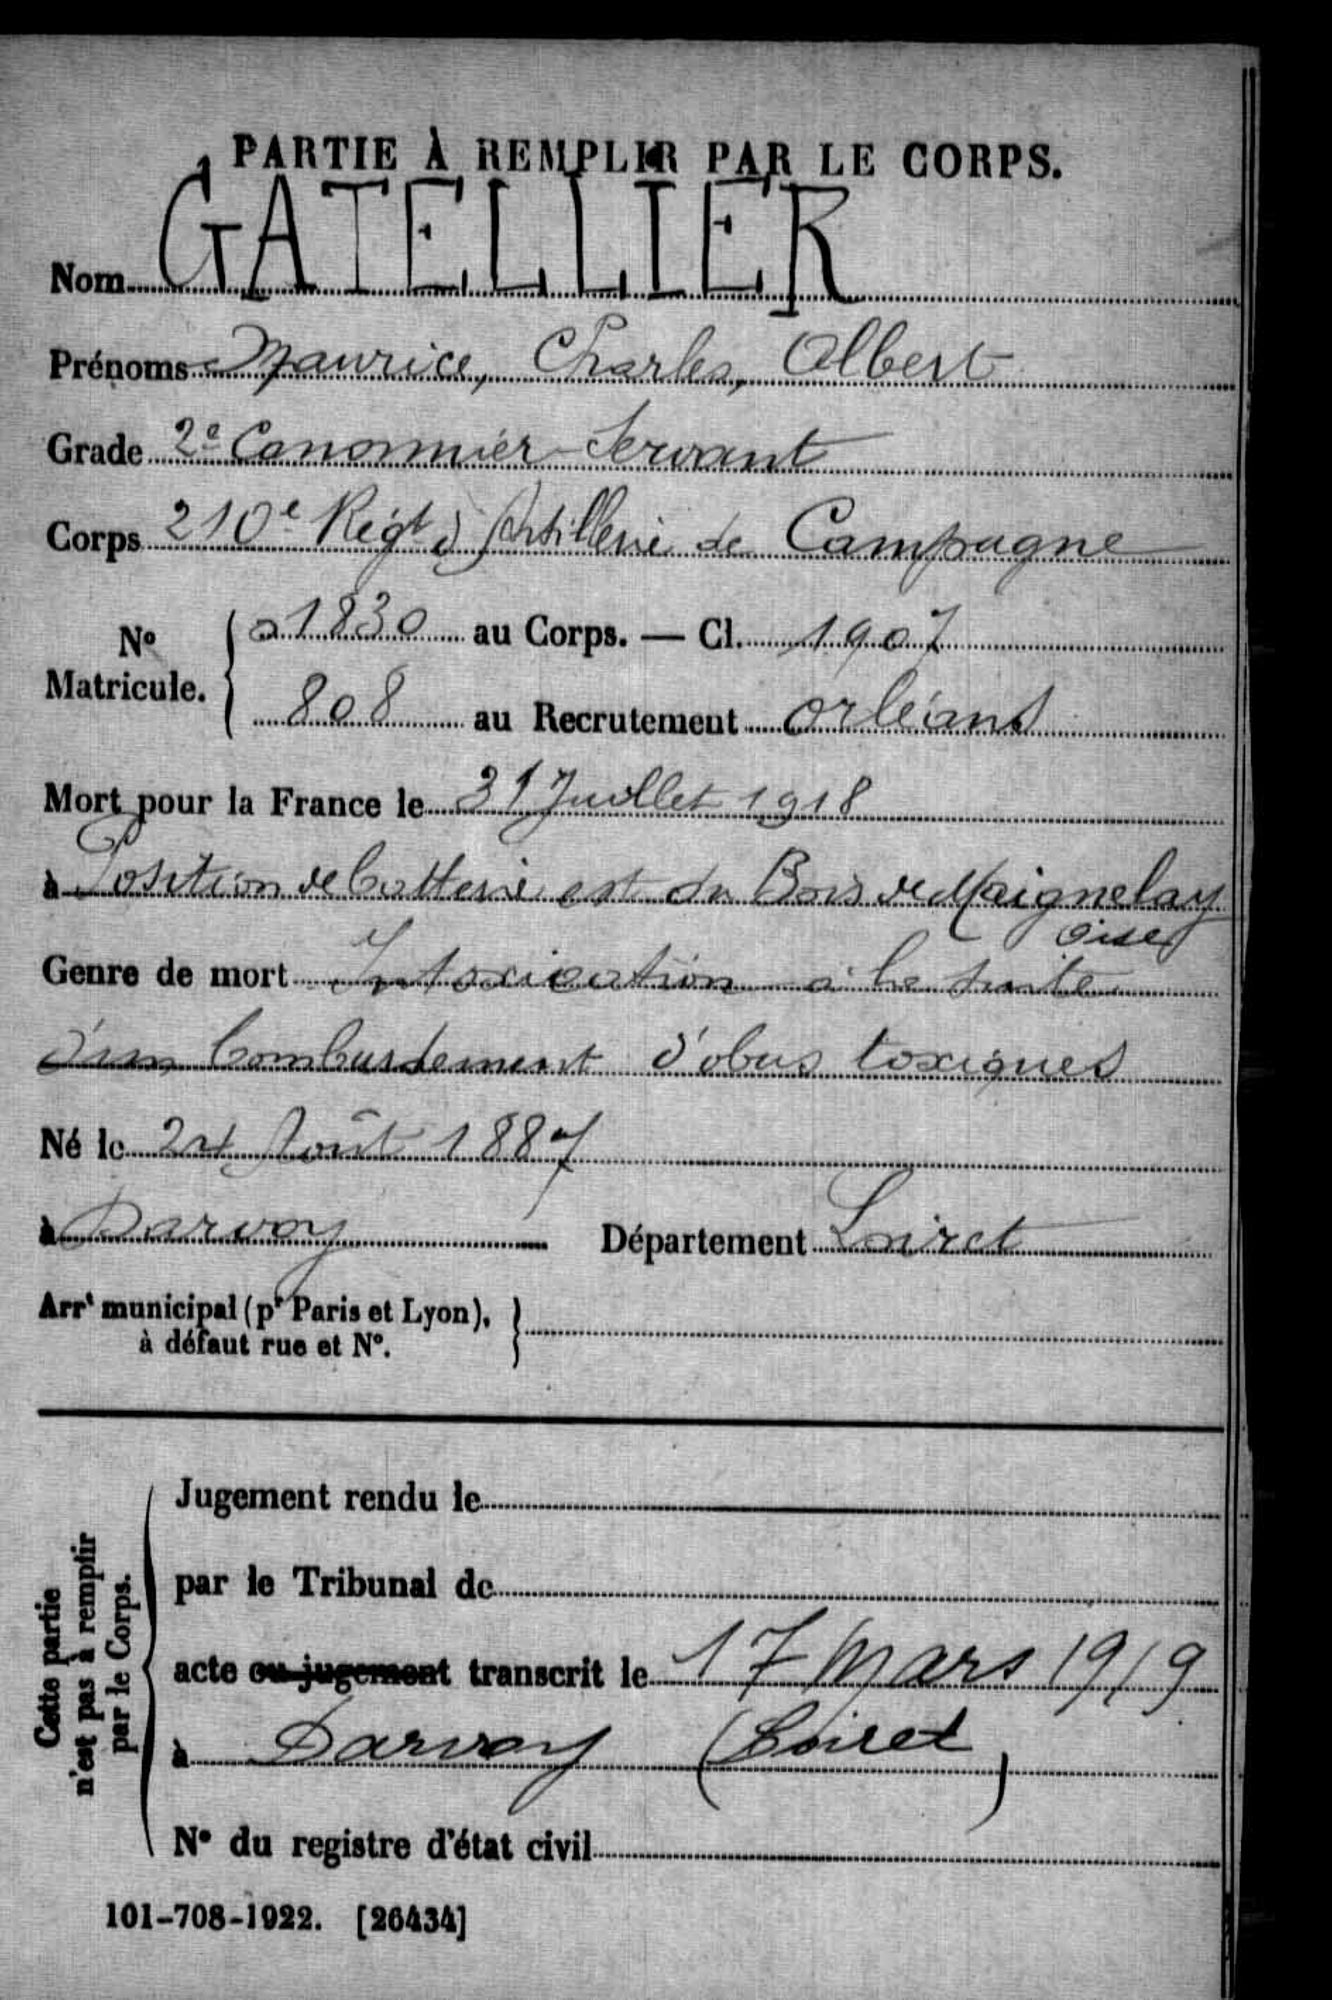 PARTIE À REMPLIR PAR LE CORPS.
Nom GATELLIER
Prénoms Maurice, Charles, Albert
Grade 2e Canonnier-Servant
Corps 210e Régt d'Artillerie de Campagne
No Matricule. 1830 au Corps. — Cl. 1907
808 au Recrutement Orléans
Mort pour la France le 31 Juillet 1918
à Position de batterie est du Bois de Maignelay
Oise
Genre de mort Intoxication à la suite
d'un bombardement d'obus toxiques
Né le 24 Août 1887
à Darvoy Département Loiret
Arrt municipal (pr Paris et Lyon),
à défaut rue et N°.
Cette partie
n'est pas à remplir
par le Corps.
Jugement rendu le
par le Tribunal de
acte ou jugement transcrit le 17 Mars 1919
à Darvoy (Loiret)
N° du registre d'état civil
101-708-1922. [26434]